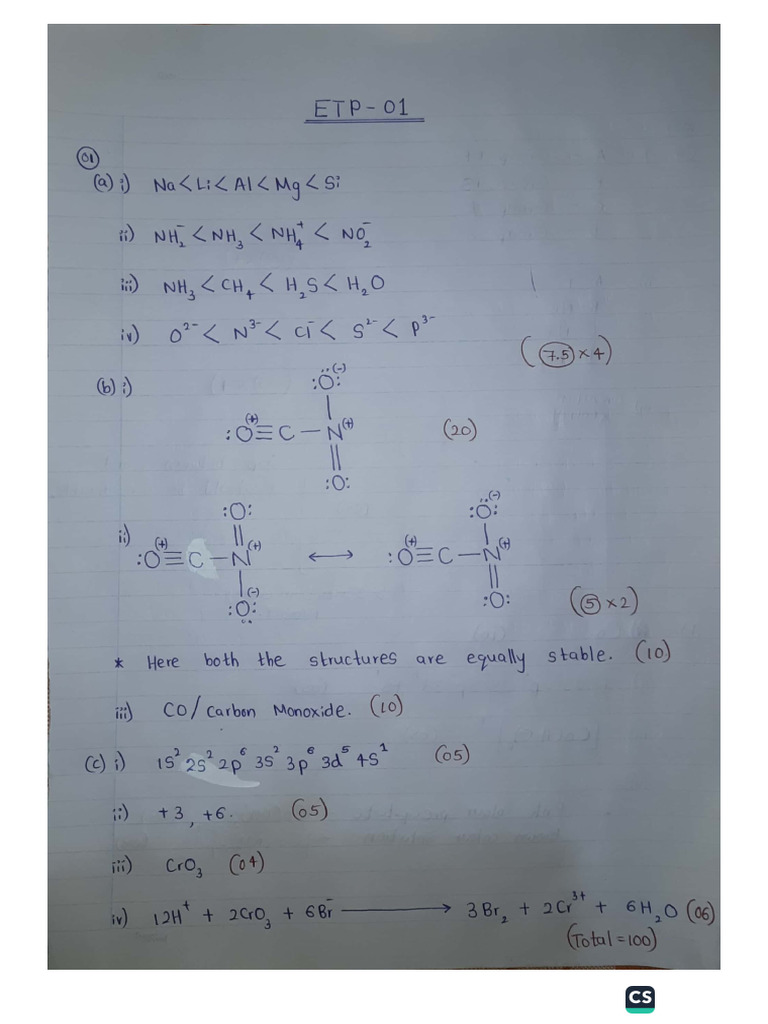 ETP-01
01
(a) i) Na < Li < Al < Mg < Si
ii) NH₂⁻ < NH₃ < NH₄⁺ < NO₂⁻
iii) NH₃ < CH₄ < H₂S < H₂O
iv) O²⁻ < N³⁻ < Cl⁻ < S²⁻ < P³⁻
(7.5 × 4)
(b) i)
:Ö:(-)
:O(+)≡C—N(+) (20)
:O:
ii) :O: :Ö:(-)
:O(+)≡C—N(+) ↔ :O(+)≡C—N(+)
:O:(-) :O: (5 × 2)
* Here both the structures are equally stable. (10)
iii) CO/Carbon Monoxide. (10)
(c) i) 1s² 2s² 2p⁶ 3s² 3p⁶ 3d⁵ 4s¹ (05)
ii) +3, +6. (05)
iii) CrO₃ (04)
iv) 12H⁺ + 2CrO₃ + 6Br⁻ ⟶ 3Br₂ + 2Cr³⁺ + 6H₂O (06)
(Total = 100)
CS